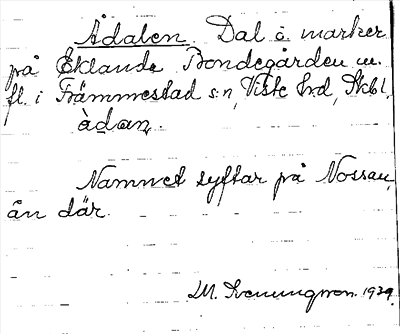 Ådalen. Dal å marker
på Eklanda, Bondegården m.
fl. i Främmestad s:n, Viste hd, Skbl.
àdan,
Namnet syftar på Nossan,
ån där.
M. 1939.